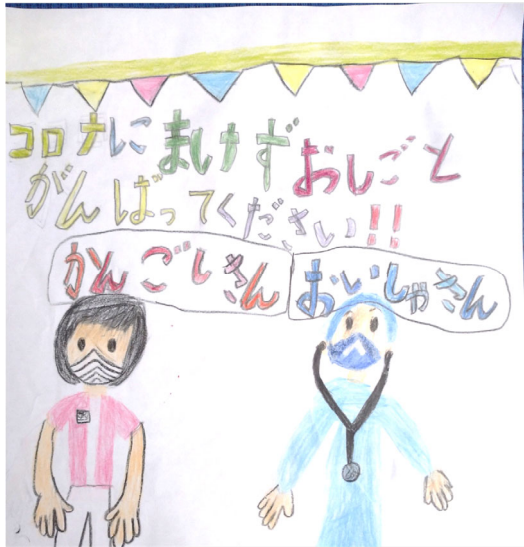 コロナにまけずおしごと
がんばってください!!
かんごしさん おいしゃさん